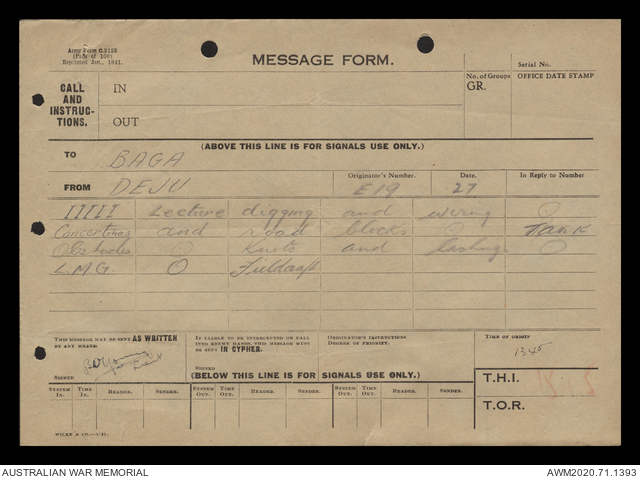 Army Form C.2128
(Pads of 100)
Reprinted Jan., 1941.
MESSAGE FORM.
Serial No.
CALL AND INSTRUCTIONS.
IN
OUT
No. of Groups
GR.
OFFICE DATE STAMP
(ABOVE THIS LINE IS FOR SIGNALS USE ONLY.)
TO BAGA
FROM DEJU
Originator's Number. E19
Date. 27
In Reply to Number
IIIII Lecture digging and wiring O
Concertinas and road blocks O TANK
Obstacles O Knots and lashings O
L.M.G. O Fieldcraft
THIS MESSAGE MAY BE SENT AS WRITTEN BY ANY MEANS.
SIGNED
IF LIABLE TO BE INTERCEPTED OR FALL INTO ENEMY HANDS, THIS MESSAGE MUST BE SENT IN CYPHER.
SIGNED
ORIGINATOR'S INSTRUCTIONS
DEGREE OF PRIORITY.
TIME OF ORIGIN
1345
(BELOW THIS LINE IS FOR SIGNALS USE ONLY.)
T.H.I.
T.O.R.
SYSTEM IN. TIME IN. READER. SENDER. SYSTEM OUT. TIME OUT. READER. SENDER. SYSTEM OUT. TIME OUT. READER. SENDER.
WILKE & CO.—1/41.
AUSTRALIAN WAR MEMORIAL
AWM2020.71.1393